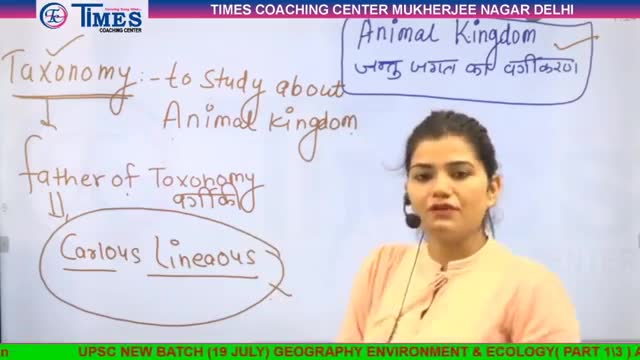 TIMES COACHING CENTER MUKHERJEE NAGAR DELHI
TIMES
COACHING CENTER
Animal Kingdom
जन्तु जगत का वर्गीकरण
Taxonomy :- to study about
Animal kingdom
father of Toxonomy
Carlous Lineaous
UPSC NEW BATCH (19 JULY) GEOGRAPHY ENVIRONMENT & ECOLOGY( PART 1\3 )